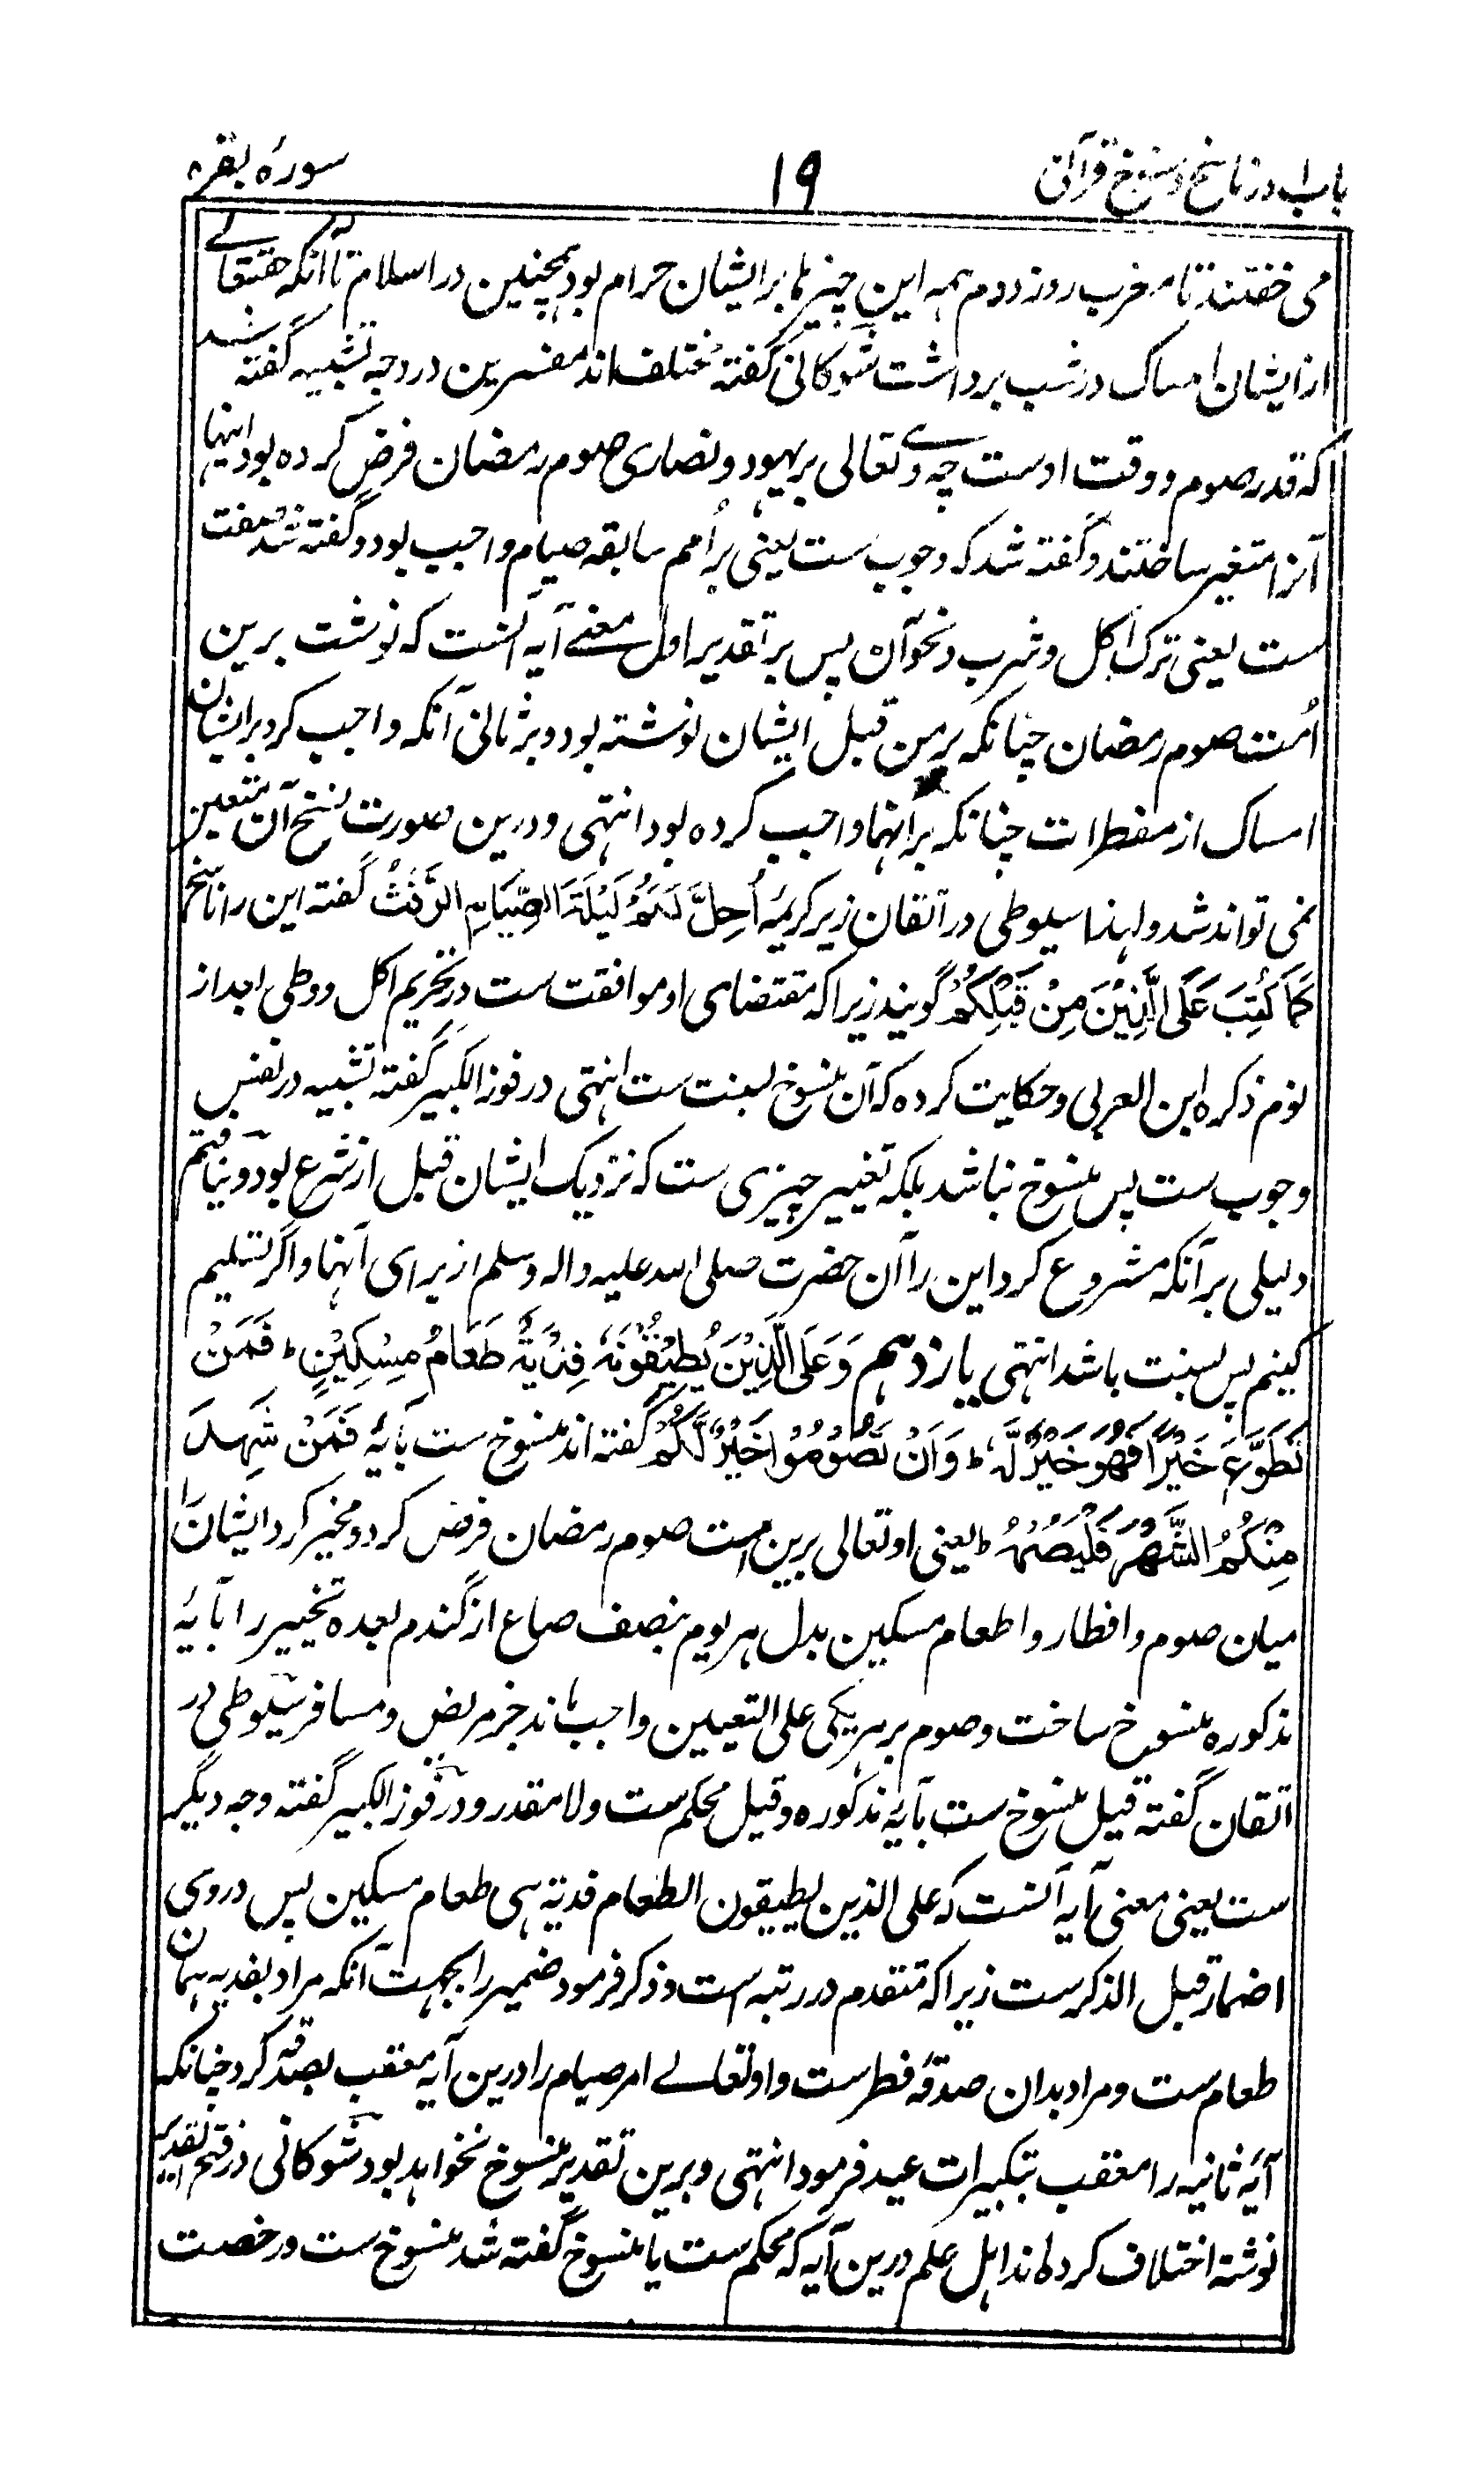 باب ۱ در ناسخ و منسوخ قرآن
۱۹
سورۂ بقرہ
می خفتند تا مغرب روز دوم ہمہ این چیزہا بر ایشان حرام بود ہمچنین در اسلام تا آنکہ حقتعالے
از ایشان امساک در شب برداشت شوکانی گفتہ مختلف اند مفسرین در وجہ تشبیہ گفتہ شد
کہ قدر صوم و وقت اوست چہ وے تعالی بر یہود و نصاری صوم رمضان فرض کردہ بود اینہا
آنرا متغیر ساختند و گفتہ شد کہ وجوب ست یعنی بر اُمم سابقہ صیام واجب بود و گفتہ شد صفت
ست یعنی ترک اکل و شرب و نحو آن پس بر تقدیر اول معنے آیہ آنست کہ نوشت برین
اُمت صوم رمضان چنانکہ بر من قبل ایشان نوشتہ بود و بر ثانی آنکہ واجب کرد بر ایشان
امساک از مفطرات چنانکہ بر آنہا واجب کردہ بود انتہی و درین صورت نسخ آن متعین
نمی تواند شد و لہذا سیوطی در اتقان زیر کریمۂ أُحِلَّ لَكُمْ لَيْلَةَ الصِّيَامِ الرَّفَثُ گفتہ این را ناسخ
كَمَا كُتِبَ عَلَى الَّذِيْنَ مِنْ قَبْلِكُمْ گویند زیرا کہ مقتضای او موافقت ست در تحریم اکل و وطی بعد از
نوم ذکرہ ابن العربی و حکایت کردہ کہ آن منسوخ بسنت ست انتہی در فوز الکبیر گفتہ تشبیہ در نفس
وجوب ست پس منسوخ نباشد بلکہ تغییر چیزی ست کہ نزدیک ایشان قبل از شرع بود و نیافتم
دلیلی بر آنکہ مشروع کرد این را آن حضرت صلی اللہ علیہ والہ وسلم از برای آنہا و اگر تسلیم
کنیم پس بسنت باشد انتہی یازدہم وَعَلَى الَّذِيْنَ يُطِيْقُوْنَهٗ فِدْيَةٌ طَعَامُ مِسْكِيْنٍ ط فَمَنْ
تَطَوَّعَ خَيْرًا فَهُوَ خَيْرٌ لَّهٗ ط وَاَنْ تَصُوْمُوْا خَيْرٌ لَّكُمْ گفتہ اند منسوخ ست بآیۂ فَمَنْ شَهِدَ
مِنْكُمُ الشَّهْرَ فَلْيَصُمْهُ ط یعنی او تعالی برین امت صوم رمضان فرض کرد و مخیر کرد ایشان را
میان صوم و افطار و اطعام مسکین بدل ہر یوم بنصف صاع از گندم بعدہ تخییر را بآیۂ
مذکورہ منسوخ ساخت و صوم بر ہر یکی علی التعیین واجب ماند جز مریض و مسافر سیوطی در
اتقان گفتہ قیل منسوخ ست بآیۂ مذکورہ و قیل محکم ست و لا مقدر و در فوز الکبیر گفتہ وجہ دیگر
ست یعنی معنی آیہ آنست کہ علی الذین یطیقون الطعام فدیۃ ہی طعام مسکین پس دروی
اضمار قبل الذکر ست زیرا کہ متقدم در رتبہ است و ذکر فرمود ضمیر را بجہت آنکہ مراد بفدیہ ہمان
طعام ست و مراد بدان صدقۂ فطر ست و او تعالے امر صیام را درین آیہ معقب بصدقہ کرد چنانکہ
آیۂ ثانیہ را معقب بتکبیرات عید فرمود انتہی و برین تقدیر منسوخ نخواہد بود شوکانی در فتح القدیر
نوشتہ اختلاف کردہ اند اہل علم درین آیہ کہ محکم ست یا منسوخ گفتہ شد منسوخ ست و رخصت